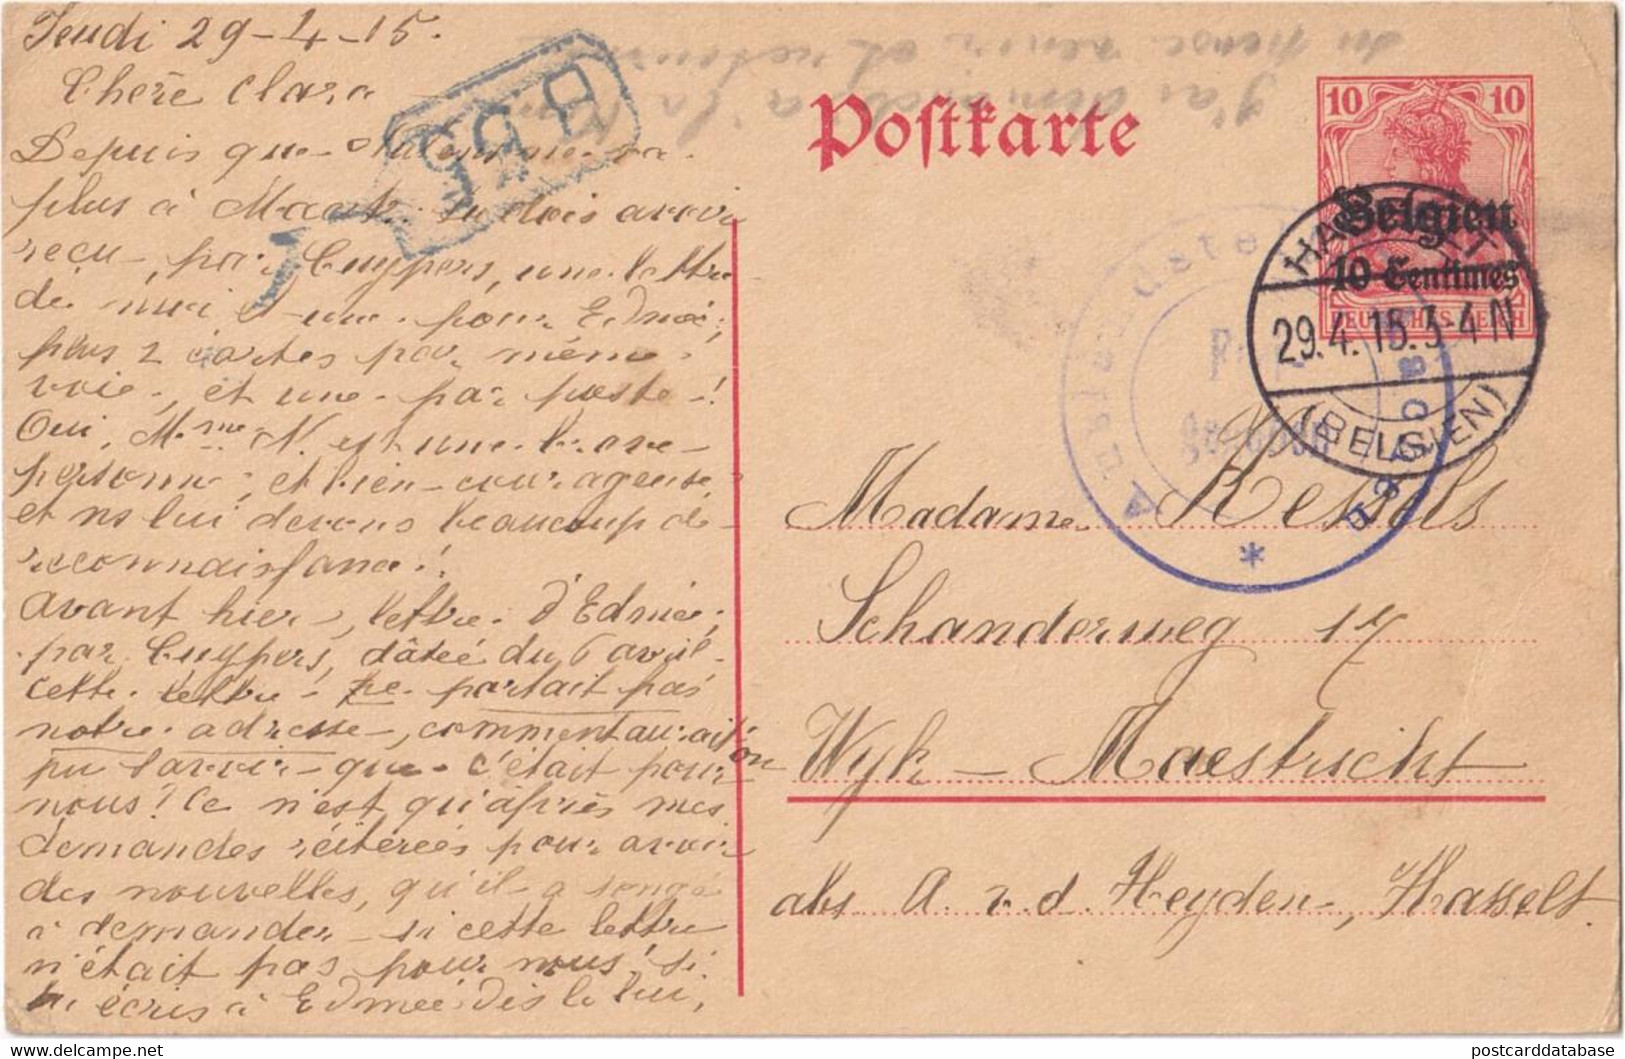 Jeudi 29-4-15.
Chère Clara
Depuis que
plus à tu dois avoir
reçu, par Cuypers, une lettre
de moi & une pour Edmée,
plus 2 cartes par même
voie, et une par poste!
Oui, Mme N. est une brave
personne, et bien courageuse,
et ns lui devons beaucoup de
reconnaissance!
Avant hier, lettre d'Edmée,
par Cuypers, dâteé du 6 avril
cette lettre ne portait pas
notre adresse, comment aurait on
pu savoir que c'était pour
nous? Ce n'est qu'après mes
demandes réitéreés pour avoir
des nouvelles, qu'il a songé
à demander si cette lettre
n'était pas pour nous! Si
tu écris à Edmeé dis le lui,
J'ai demandé à la
Postkarte
10 10
Belgien
10 Centimes
DEUTSCHES REICH
HASSELT
29.4.15.3-4N
(BELGIEN)
Auslandstelle
Aachen
Madame Kessels
Schanderweg 17
Wyk - Maestricht
abs A. v. d. Heyden, Hasselt.
postcarddatabase.com
postcarddatabase